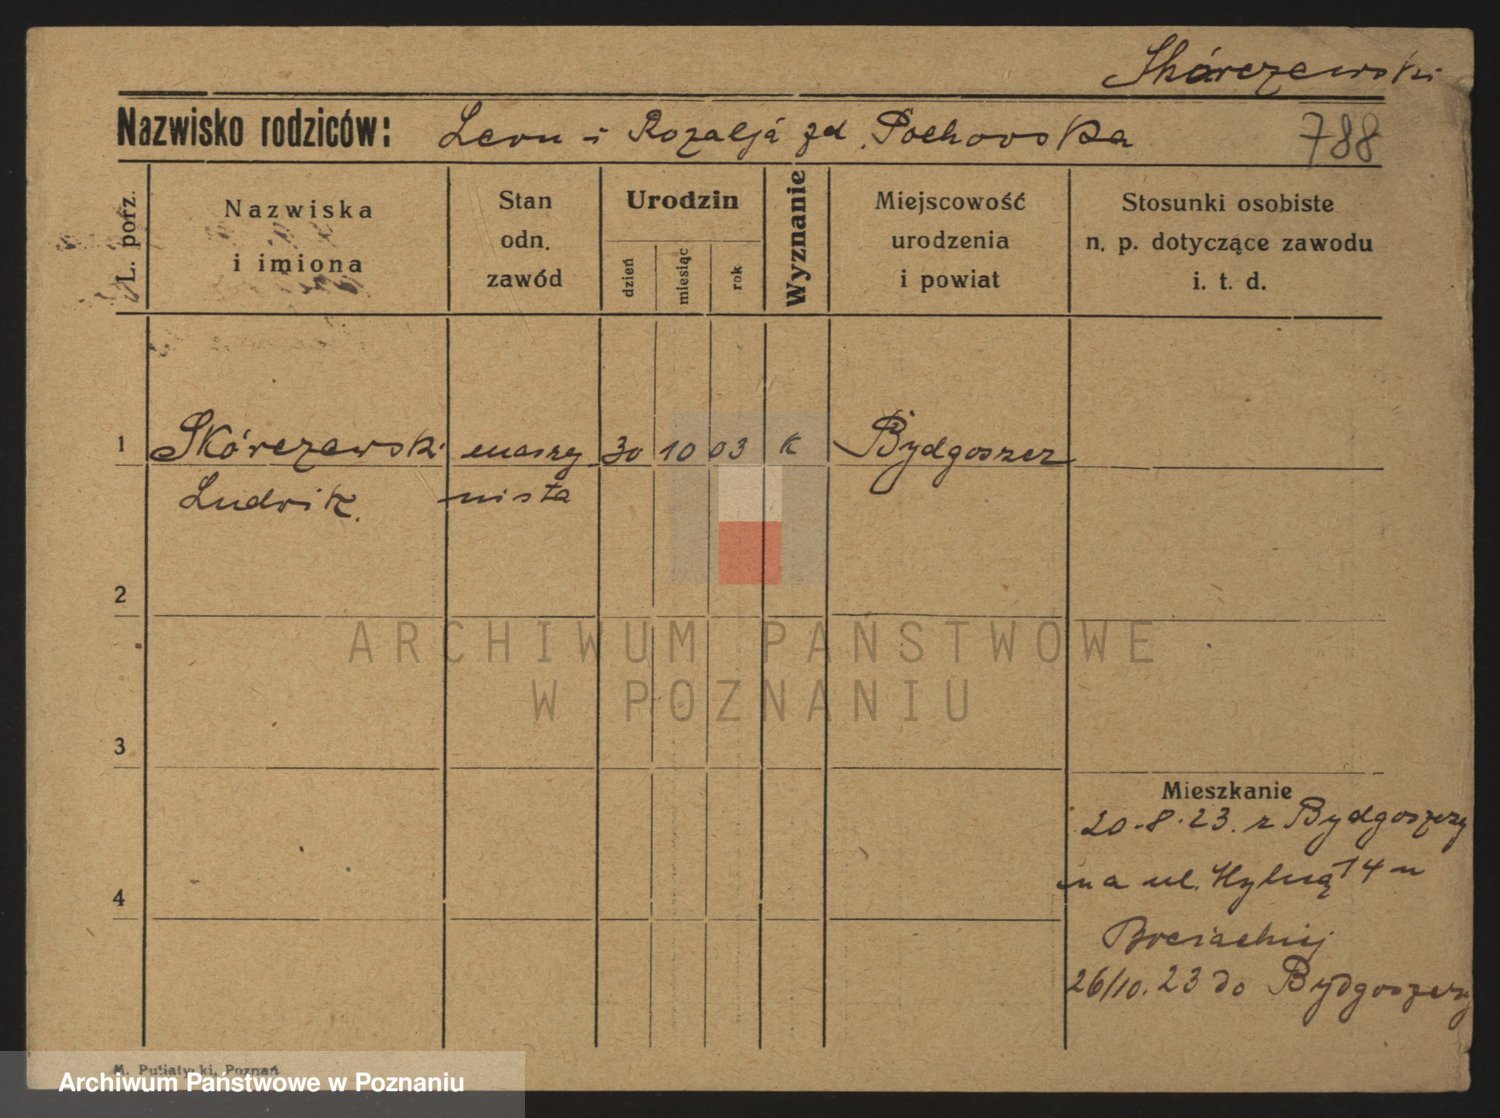 Skórczewski
Nazwisko rodziców: Leon i Rozalja zd. Pochowska
788
L. porz.
Nazwiska
i imiona
Stan
odn.
zawód
Urodzin
dzień
miesiąc
rok
Wyznanie
Miejscowość
urodzenia
i powiat
Stosunki osobiste
n. p. dotyczące zawodu
i. t. d.
1 Skórczewski maszy 30 10 03 K Bydgoszcz
Ludwik. nista
2
3
4
Mieszkanie
20.8.23. z Bydgoszczy
na ul. 14 u
26/10.23 do Bydgoszczy
ARCHIWUM PAŃSTWOWE
W POZNANIU
M. Putiatycki, Poznań
Archiwum Państwowe w Poznaniu